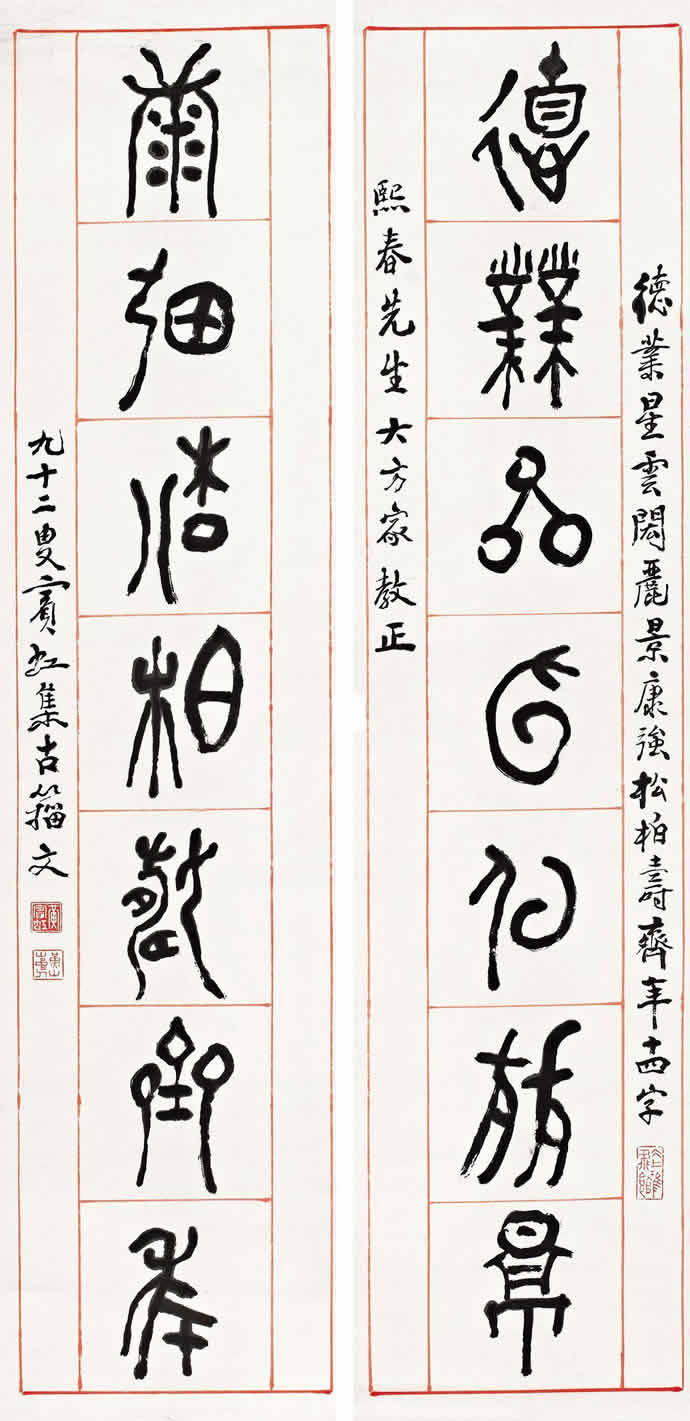 德業星雲閎麗景康強松柏壽齊年十四字
德業星雲閎麗景
熙春先生大方家教正
康強松柏壽齊年
九十二叟賓虹集古籀文